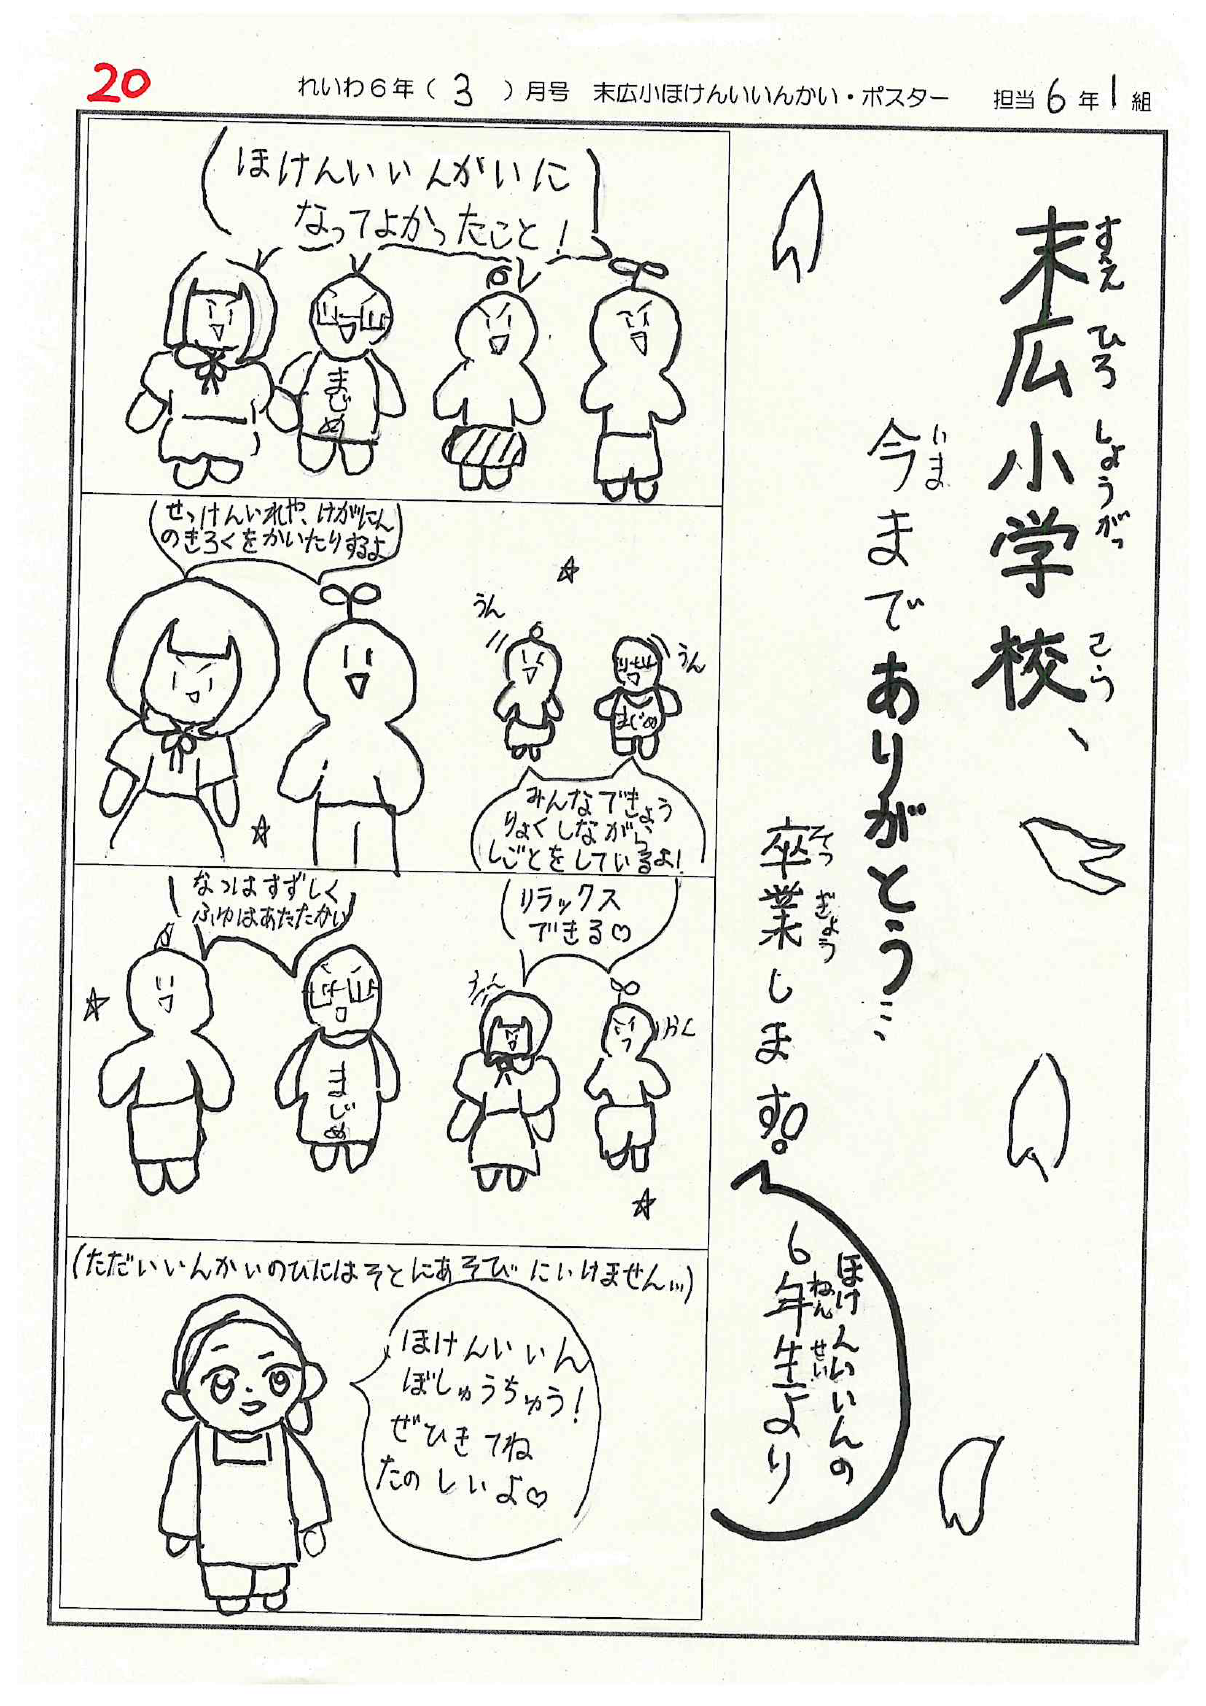 20
れいわ6年(3)月号 末広小ほけんいいんかい・ポスター 担当6年1組
末広小学校、
すえひろしょうがっこう
今までありがとう…
いま
卒業します。
そつぎょう
ほけんいいんの
6年生より
ねんせい
ほけんいいんがいに
なってよかったこと!
まじめ
せっけんいれや、けがにん
のきろくをかいたりするよ
うん
うん
まじめ
みんなできょう
りょくしながら、
しごとをしているよ!
なつはすずしく
ふゆはあたたかい
まじめ
リラックス
できる♡
(ただいいんかいのひにはそとにあそびにいけません…)
ほけんいいん
ぼしゅうちゅう!
ぜひきてね
たのしいよ♡